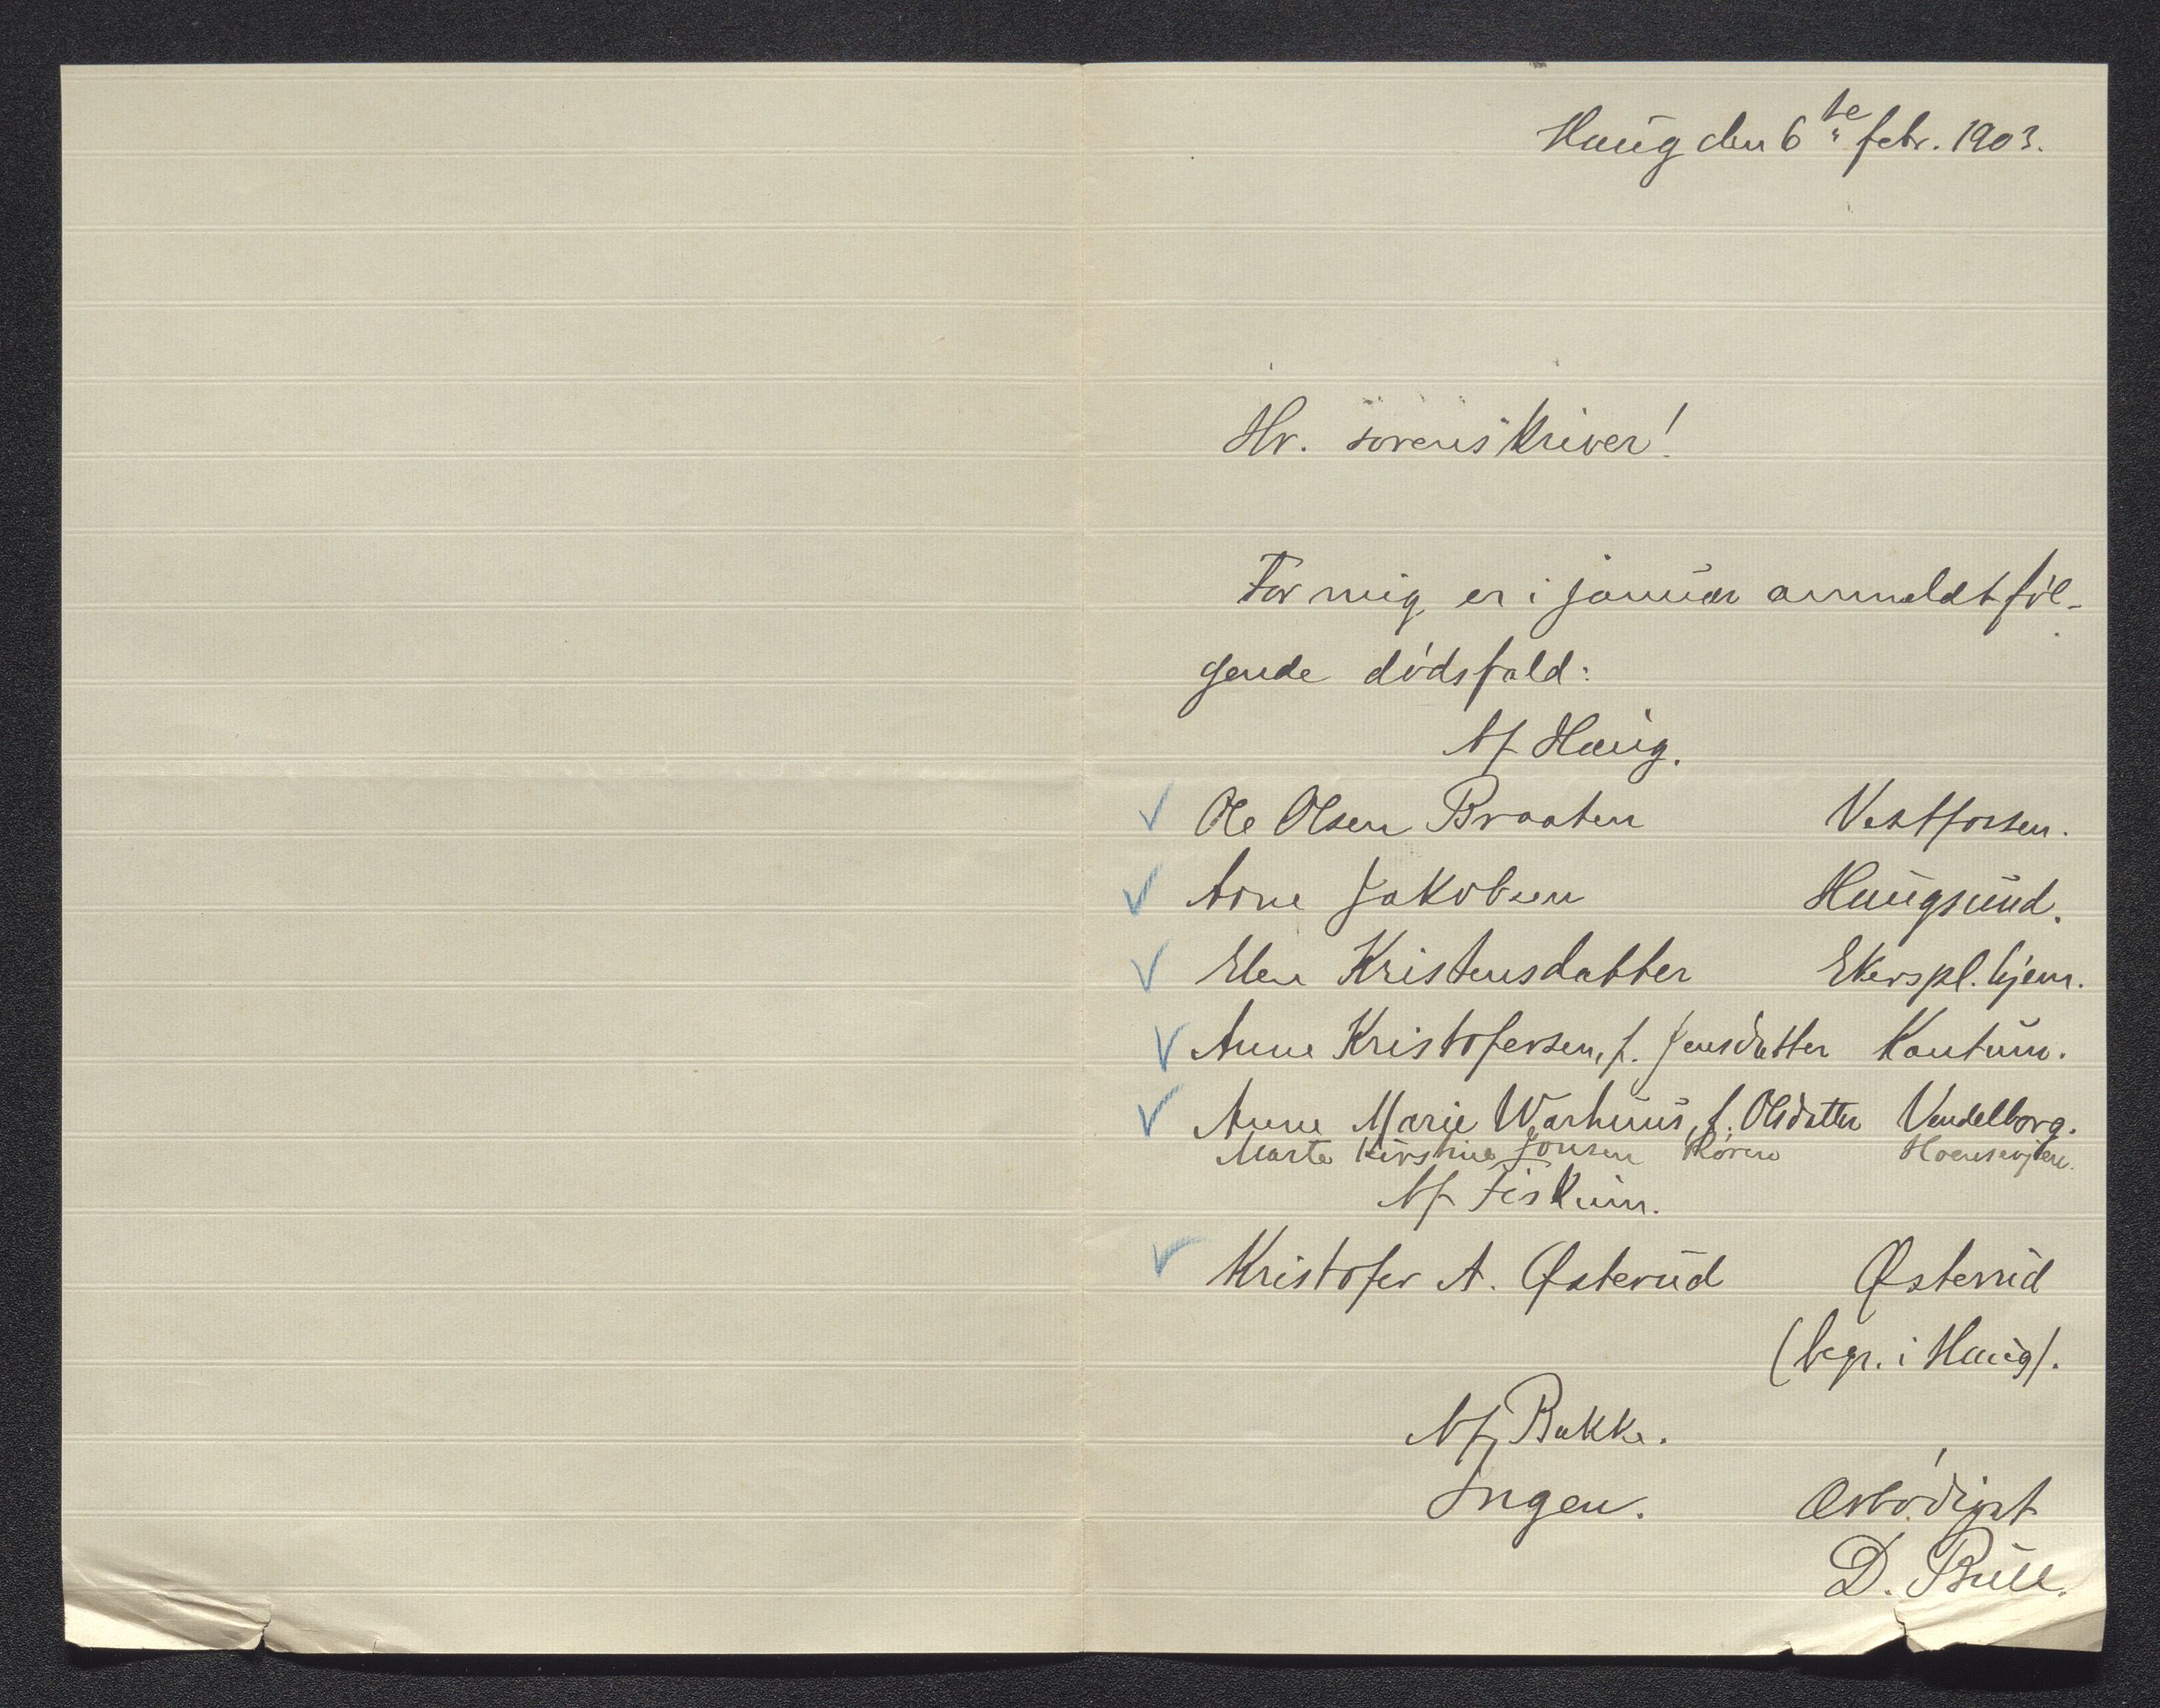 Haug den 6te febr. 1903.
Hr. sorenskriver!
For mig er i januar anmeldt føl-
gende dødsfald:
Af Haug.
Ole Olsen Braaten Vestfossen.
Arne Jakobsen Haugsund.
Elen Kristensdatter Ekers pl. hjem.
Anne Kristofersen, f. Jensdatter
Anne Marie Warhuus, f. Olsdatter Vendelborg.
Marte Kirstine Jonsen
Af Fiskum.
Kristofer A. Østerud Østerud
(begr. i Haug).
Af Bakke.
Ingen. Ærbødigst
D. Bull.